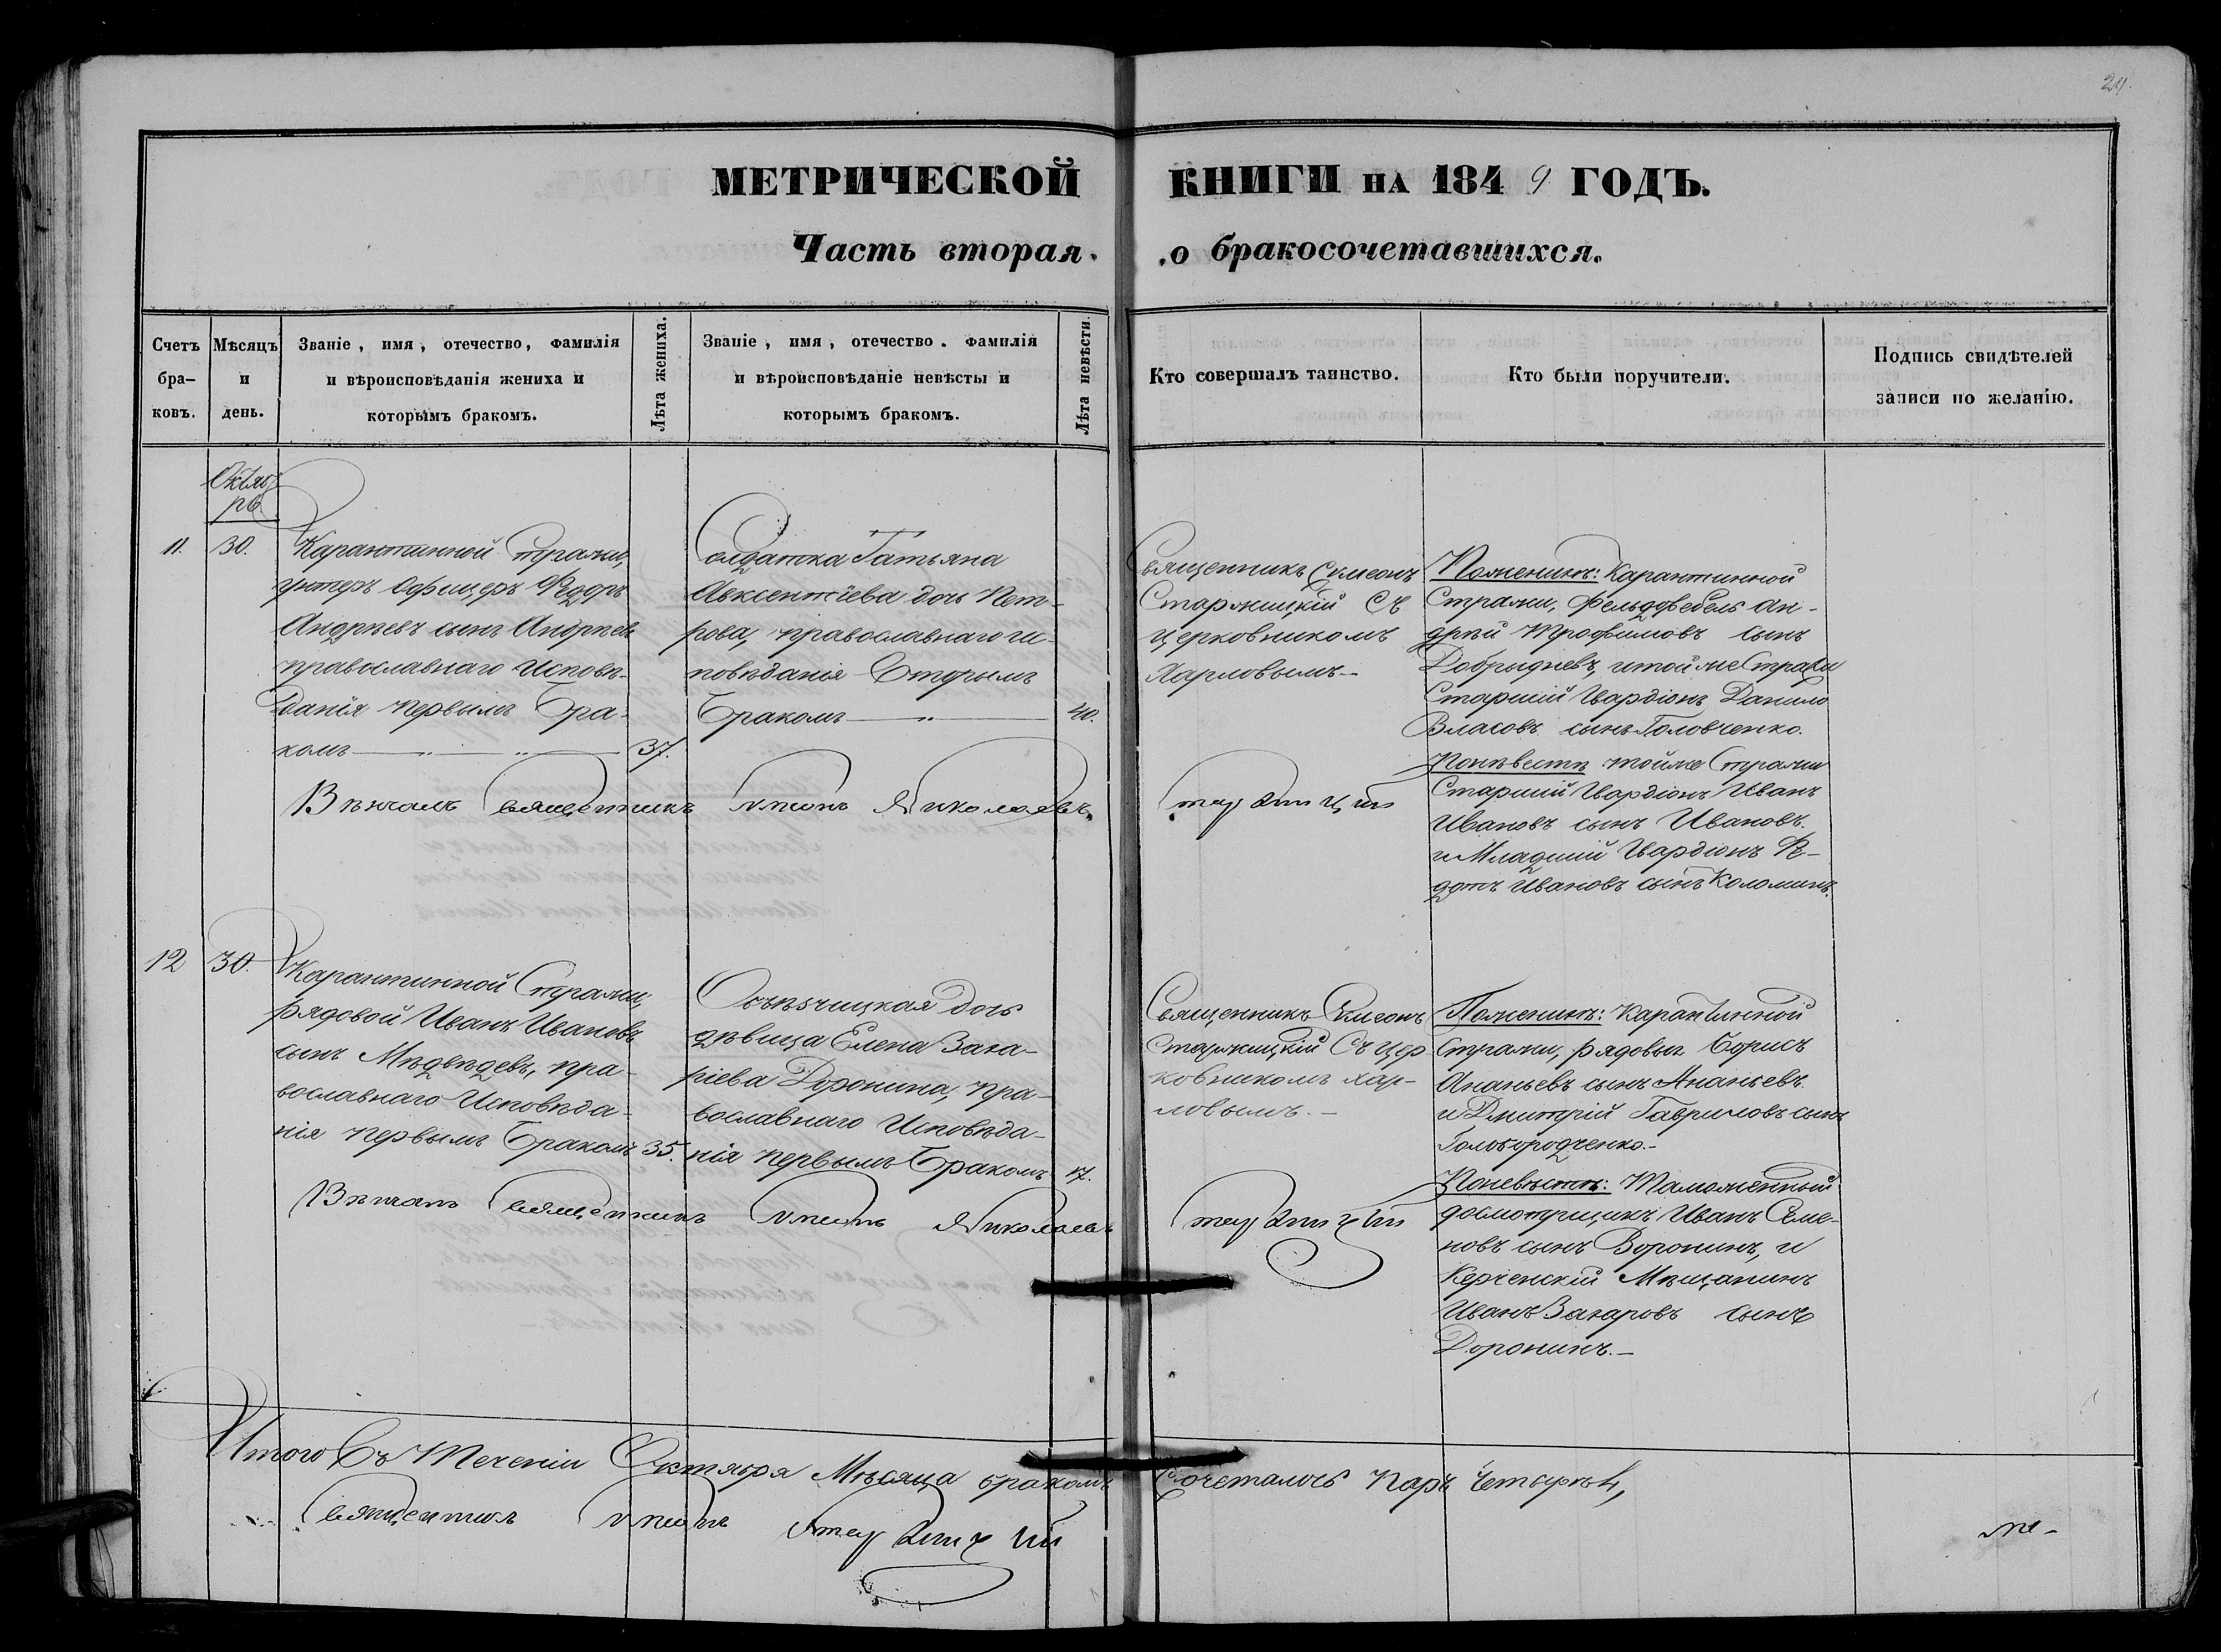 24.
МЕТРИЧЕСКОЙ КНИГИ НА 1849 ГОДЪ.
Часть вторая. .о бракосочетавшихся.
Счетъ бра-ковъ.
Мѣсяцъ и день.
Званіе, имя, отечество, фамилія
и вѣроисповѣданія жениха и
которымъ бракомъ.
Лѣта жениха.
Званіе, имя, отечество. фамилія
и вѣроисповѣданіе невѣсты и
которымъ бракомъ.
Лѣта невѣсти.
Кто совершалъ таинство.
Кто были поручители.
Подпись свидѣтелей
записи по желанію.
Октяб
рь
11.
30.
Карантинной Стражи,
унтеръ офицеръ Федоръ
Андреевъ сынъ Андреевъ
православнаго Исповѣ-
данія первымъ Бра-
комъ
37.
Солдатка Татьяна
Авксентіева дочь Пет-
рова, православнаго ис-
повѣданія Вторымъ
Бракомъ
40.
Священникъ Симеонъ
Старжицкій Съ
церковникомъ
Харловымъ.
По женихѣ: Карантинной
Стражи, фельдфебель Ан-
дрей Трофимовъ сынъ
Добрыднев, и той же Стражи
Старшій Гвардіонъ Данило
Власовъ сынъ Головченко.
По невестѣ той же Стражи
Старшій Гвардіонъ Иванъ
Ивановъ сынъ Ивановъ.
и Младшій Гвардіонъ
Ивановъ сынъ Коломинъ.
Вѣнчалъ Священникъ Симеонъ Николаевъ Старжицкій
12
30.
Карантинной Стражи,
рядовой Иванъ Ивановъ
сынъ Медведевъ, пра-
вославнаго Исповѣда-
нія первымъ Бракомъ
35.
дочь
дѣвица Елена Заха-
ріева Доронина, пра-
вославнаго Исповѣда-
нія первымъ Бракомъ
17.
Священникъ Симеонъ
Старжицкій Съ цер
ковникомъ Хар-
ловымъ.
По женихѣ: Карантинной
Стражи, рядовые Борисъ
Ананьевъ сынъ Ананьевъ
и Дмитрій Гавриловъ сынъ
Голобородченко.
По невѣстѣ: Таможенный
досмотрщикъ Иванъ Семе-
новъ сынъ Воронинъ, и
Керченскій Мѣщанинъ
Иванъ Захаровъ сынъ
Доронинъ.
Вѣнчалъ Священникъ Симеонъ Николаевъ Старжицкій
Итого Въ теченіи Октября Мѣсяца бракомъ Сочеталось Паръ Четыре 4,
Священникъ Симеонъ Старжицкій